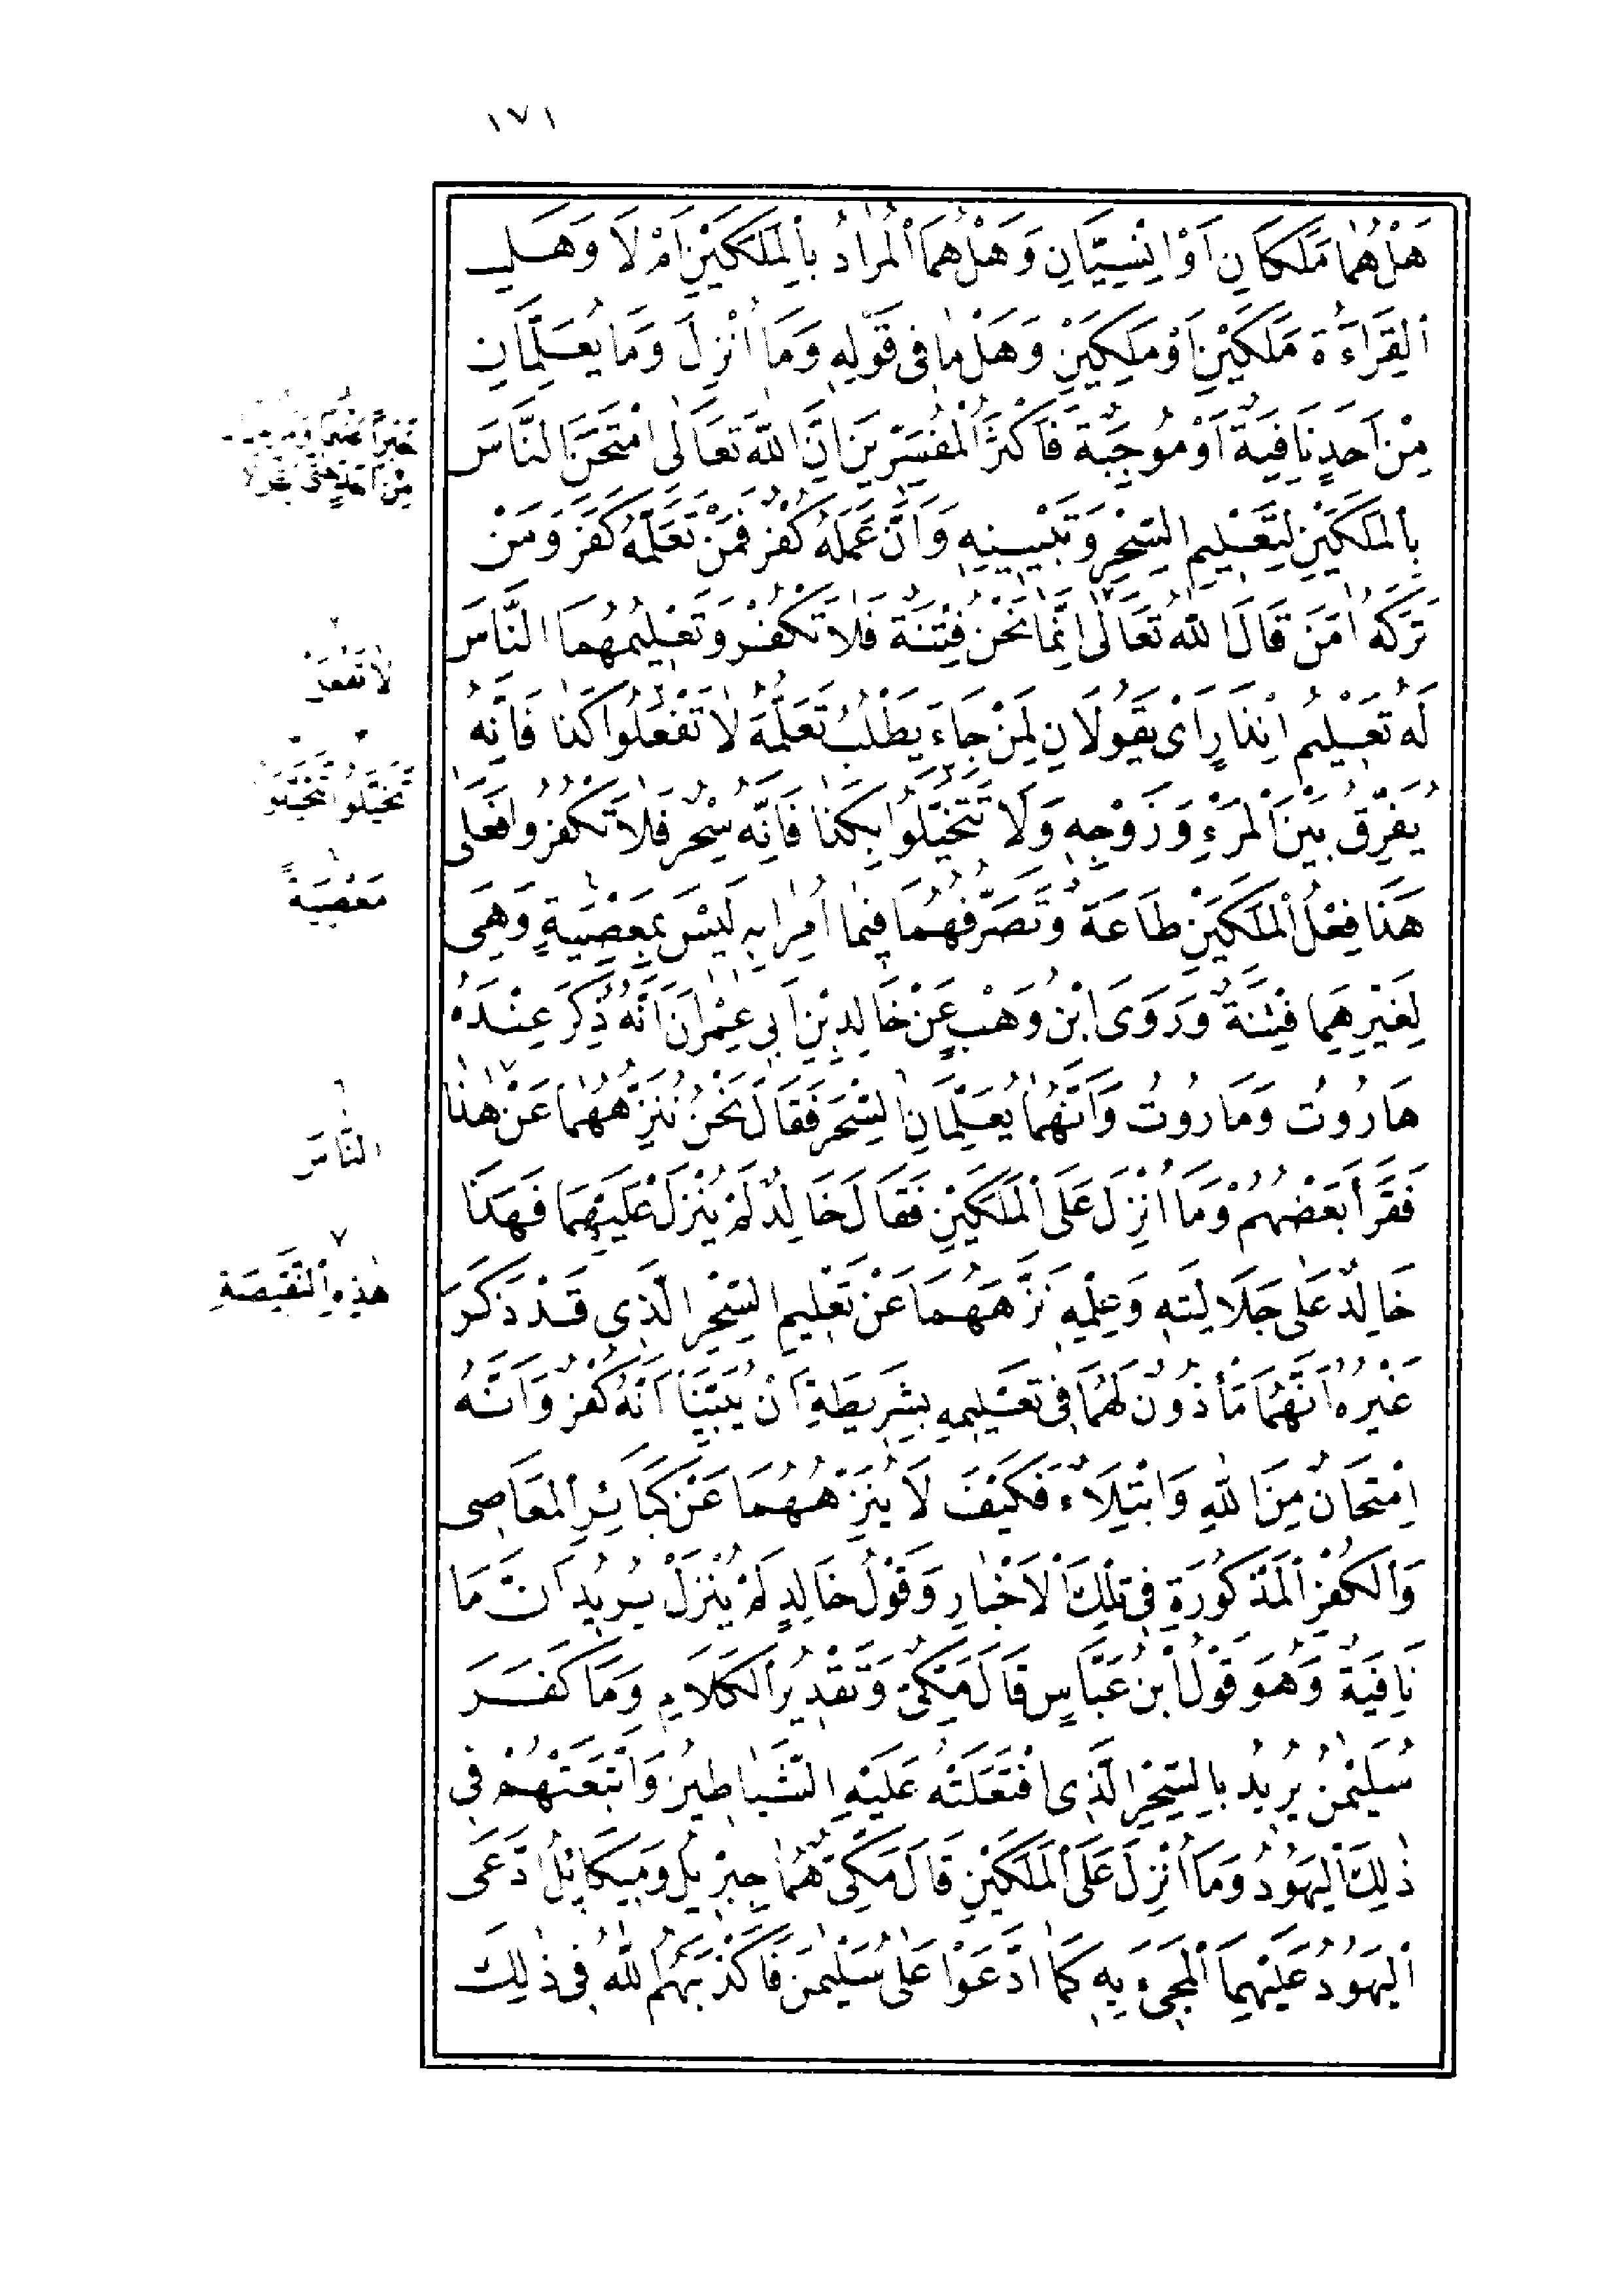 ١٧١
هَلْ هُمَا مَلَكَانِ اَوْ اِنْسِيَّانِ وَهَلْ هُمَا الْمُرَادُ بِالْمَلَكَيْنِ اَمْ لَا وَهَلِ
الْقِرَاءَةُ مَلَكَيْنِ اَوْ مَلِكَيْنِ وَهَلْ مَا فِى قَوْلِهِ وَمَا اُنْزِلَ وَمَا يُعَلِّمَانِ
مِنْ اَحَدٍ نَافِيَةٌ اَوْ مُوجِبَةٌ فَاَكْثَرُ الْمُفَسِّرِينَ اِنَّ اللّٰهَ تَعَالٰى امْتَحَنَ النَّاسَ
بِالْمَلَكَيْنِ لِتَعْلِيمِ السِّحْرِ وَتَبْيِينِهِ وَاَنَّ عَمَلَهُ كُفْرٌ فَمَنْ تَعَلَّمَهُ كَفَرَ وَمَنْ
تَرَكَهُ اٰمَنَ قَالَ اللّٰهُ تَعَالٰى اِنَّمَا نَحْنُ فِتْنَةٌ فَلَا تَكْفُرْ وَتَعْلِيمُهُمَا النَّاسَ
لَهُ تَعْلِيمُ اِنْذَارٍ اَىْ يَقُولَانِ لِمَنْ جَاءَ يَطْلُبُ تَعَلُّمَهُ لَا تَفْعَلُوا كَذَا فَاِنَّهُ
يُفَرِّقُ بَيْنَ الْمَرْءِ وَزَوْجِهِ وَلَا تَتَخَيَّلُوا بِكَذَا فَاِنَّهُ سِحْرٌ فَلَا تَكْفُرُوا فَعَلٰى
هَذَا فِعْلُ الْمَلَكَيْنِ طَاعَةٌ وَتَصَرُّفُهُمَا فِيمَا اُمِرَا بِهِ لَيْسَ بِمَعْصِيَةٍ وَهِىَ
لِغَيْرِهِمَا فِتْنَةٌ وَرَوَى ابْنُ وَهْبٍ عَنْ خَالِدِ بْنِ اَبِى عِمْرَانَ اَنَّهُ ذُكِرَ عِنْدَهُ
هَارُوتُ وَمَارُوتُ وَاَنَّهُمَا يُعَلِّمَانِ السِّحْرَ فَقَالَ نَحْنُ نُنَزِّهُهُمَا عَنْ هٰذَا
فَقَرَأَ بَعْضُهُمْ وَمَا اُنْزِلَ عَلَى الْمَلَكَيْنِ فَقَالَ خَالِدٌ لَمْ يُنْزَلْ عَلَيْهِمَا فَهَذَا
خَالِدٌ عَلٰى جَلَالَتِهِ وَعِلْمِهِ نَزَّهَهُمَا عَنْ تَعْلِيمِ السِّحْرِ الَّذِى قَدْ ذَكَرَ
غَيْرُهُ اَنَّهُمَا مَأْذُونٌ لَهُمَا فِى تَعْلِيمِهِ بِشَرِيطَةِ اَنْ يُبَيِّنَا اَنَّهُ كُفْرٌ وَاَنَّهُ
اِمْتِحَانٌ مِنَ اللّٰهِ وَابْتِلَاءٌ فَكَيْفَ لَا يُنَزِّهُهُمَا عَنْ كَبَائِرِ الْمَعَاصِى
وَالْكُفْرِ الْمَذْكُورَةِ فِى تِلْكَ الْاَخْبَارِ وَقَوْلُ خَالِدٍ لَمْ يُنْزَلْ يُرِيدُ اَنَّ مَا
نَافِيَةٌ وَهُوَ قَوْلُ ابْنِ عَبَّاسٍ قَالَ مَكِّىٌّ وَتَقْدِيرُ الْكَلَامِ وَمَا كَفَرَ
سُلَيْمٰنُ يُرِيدُ بِالسِّحْرِ الَّذِى افْتَعَلَتْهُ عَلَيْهِ الشَّيَاطِينُ وَاتَّبَعَتْهُمْ فِى
ذٰلِكَ الْيَهُودُ وَمَا اُنْزِلَ عَلَى الْمَلَكَيْنِ قَالَ مَكِّىٌّ هُمَا جِبْرِيلُ وَمِيكَائِلُ ادَّعَى
الْيَهُودُ عَلَيْهِمَا الْمَجِىءَ بِهِ كَمَا ادَّعَوْا عَلٰى سُلَيْمٰنَ فَاَكْذَبَهُمُ اللّٰهُ فِى ذٰلِكَ
مِنْ اَحَدٍ
لَا تَفْعَلْ
تَخَيَّلُوا تَتَحَيَّلُوا
مَعْصِيَةً
النَّاسَ
هٰذِهِ النَّقِيصَةِ